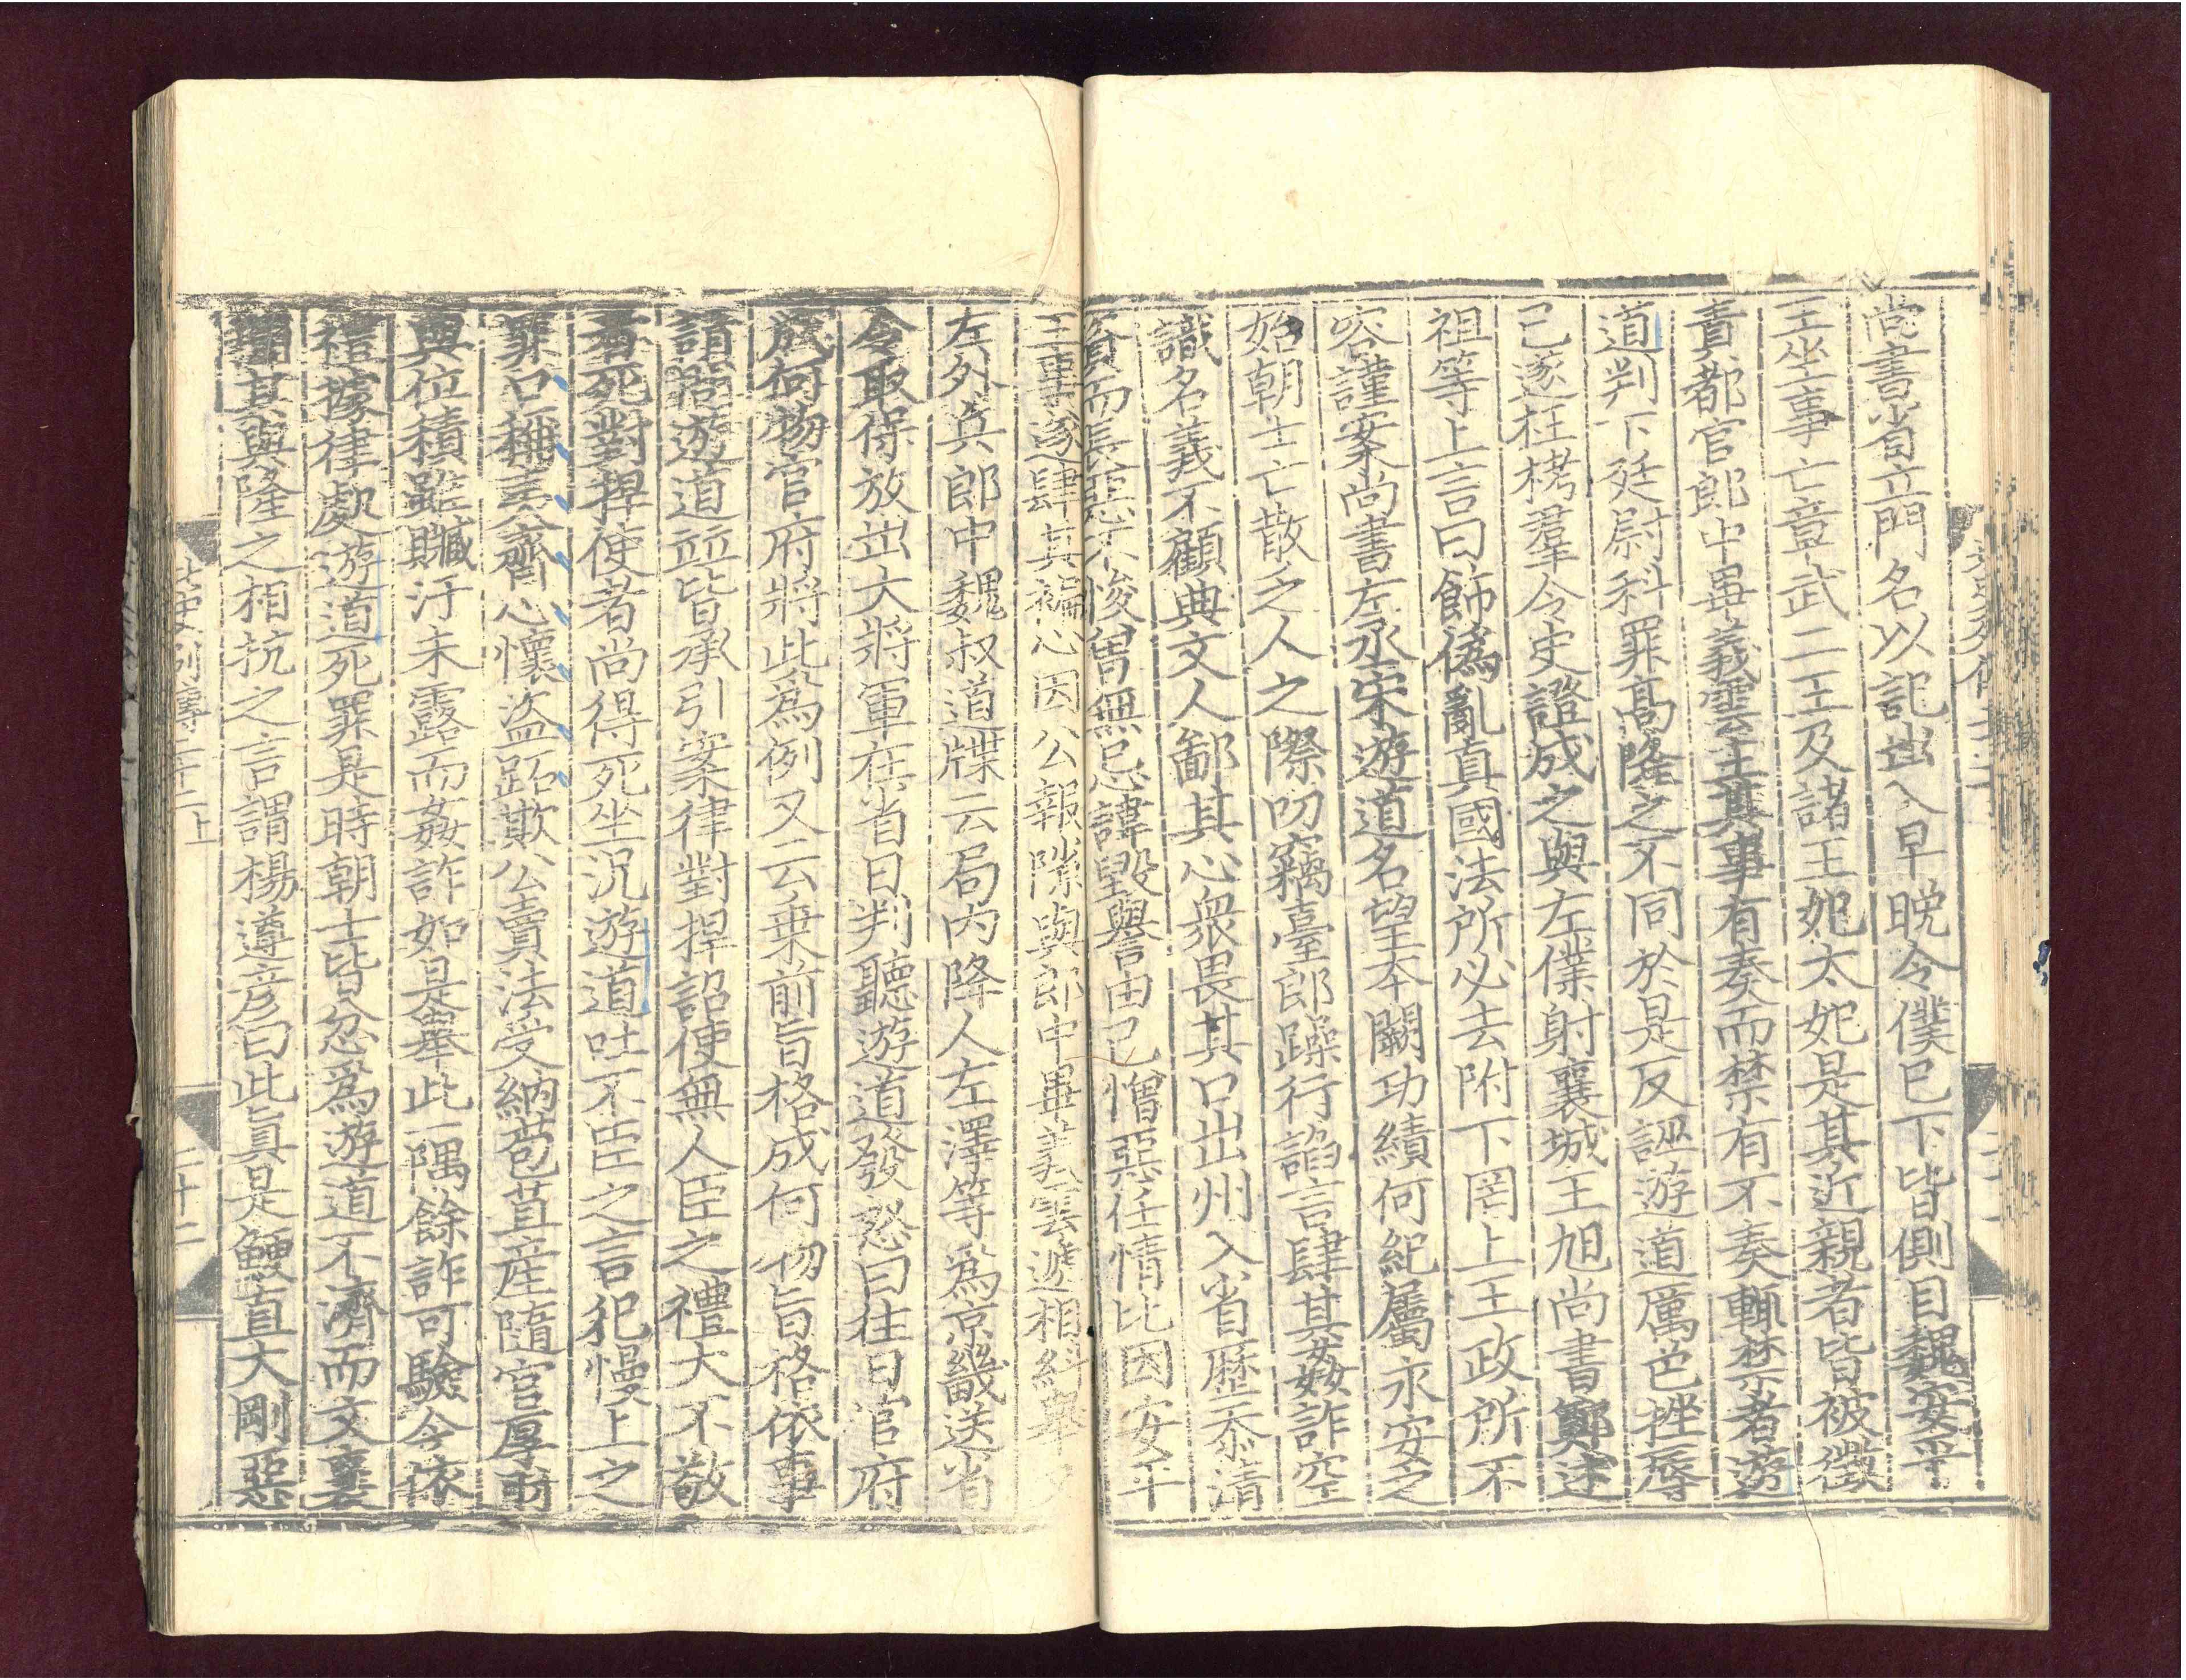 尚書省立門名以記出入早晚令僕已下皆側目魏安平
王坐事亡章武二王及諸王妃太妃是其近親者皆被徵
責都官郎中畢義雲主其事有奏而禁有不奏輒禁者游
道判下廷尉科罪高隆之不同於是反誣游道厲色挫辱
己遂枉栲羣令史證成之與左僕射襄城王旭尚書鄭述
祖等上言曰飾僞亂真國法所必去附下罔上王政所不
容謹案尚書左丞宋遊道名望本闕功績何紀屬永安之
始朝士亡散乏人之際叨竊臺郎躁行諂言肆其姦詐空
識名義不顧典文人鄙其心衆畏其口出州入省歷忝清
資而長惡不悛曾無忌諱毀譽由己憎惡任情比因安平
王事遂肆其褊心因公報隙與郎中畢義雲遞相糾舉又
左外兵郎中魏叔道牒云局內降人左澤等爲京畿送省
令取保放出大將軍在省日判聽遊道發怒曰往日官府
成何物官府將此爲例又云乗前旨格成何物旨格依事
請問遊道並皆承引案律對捍詔使無人臣之禮大不敬
者死對捍使者尚得死坐況遊道吐不臣之言犯慢上之
罪口稱夷齊心懷盜跖欺公賣法受納苞苴産隨官厚財
與位積雖贓汙未露而姦詐如是舉此一隅餘詐可驗今依
禮據律處遊道死罪是時朝士皆忿爲遊道不濟而文襄
聞其與隆之相抗之言謂楊遵彦曰此真是鯁直大剛惡
北史列傳二十二上
二十二